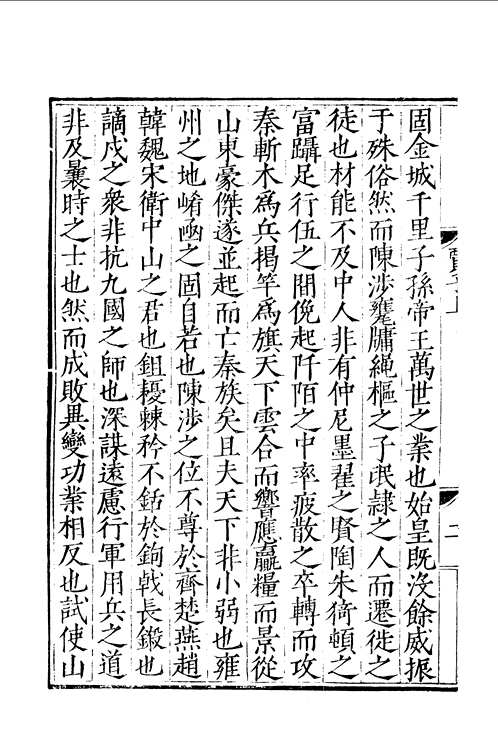 固金城千里子孫帝王萬世之業也始皇旣沒餘威振
于殊俗然而陳涉甕牖繩樞之子氓隷之人而遷徙之
徒也材能不及中人非有仲尼墨翟之賢陶朱猗頓之
富躡足行伍之間俛起阡陌之中率疲散之卒轉而攻
秦斬木爲兵揭竿爲旗天下雲合而響應贏糧而景從
山東豪傑遂並起而亡秦族矣且夫天下非小弱也雍
州之地崤凾之固自若也陳涉之位不尊於齊楚燕趙
韓魏宋衛中山之君也鉏耰棘矜不銛於鉤戟長鎩也
謫戍之衆非抗九國之師也深謀遠慮行軍用兵之道
非及曩時之士也然而成敗異變功業相反也試使山